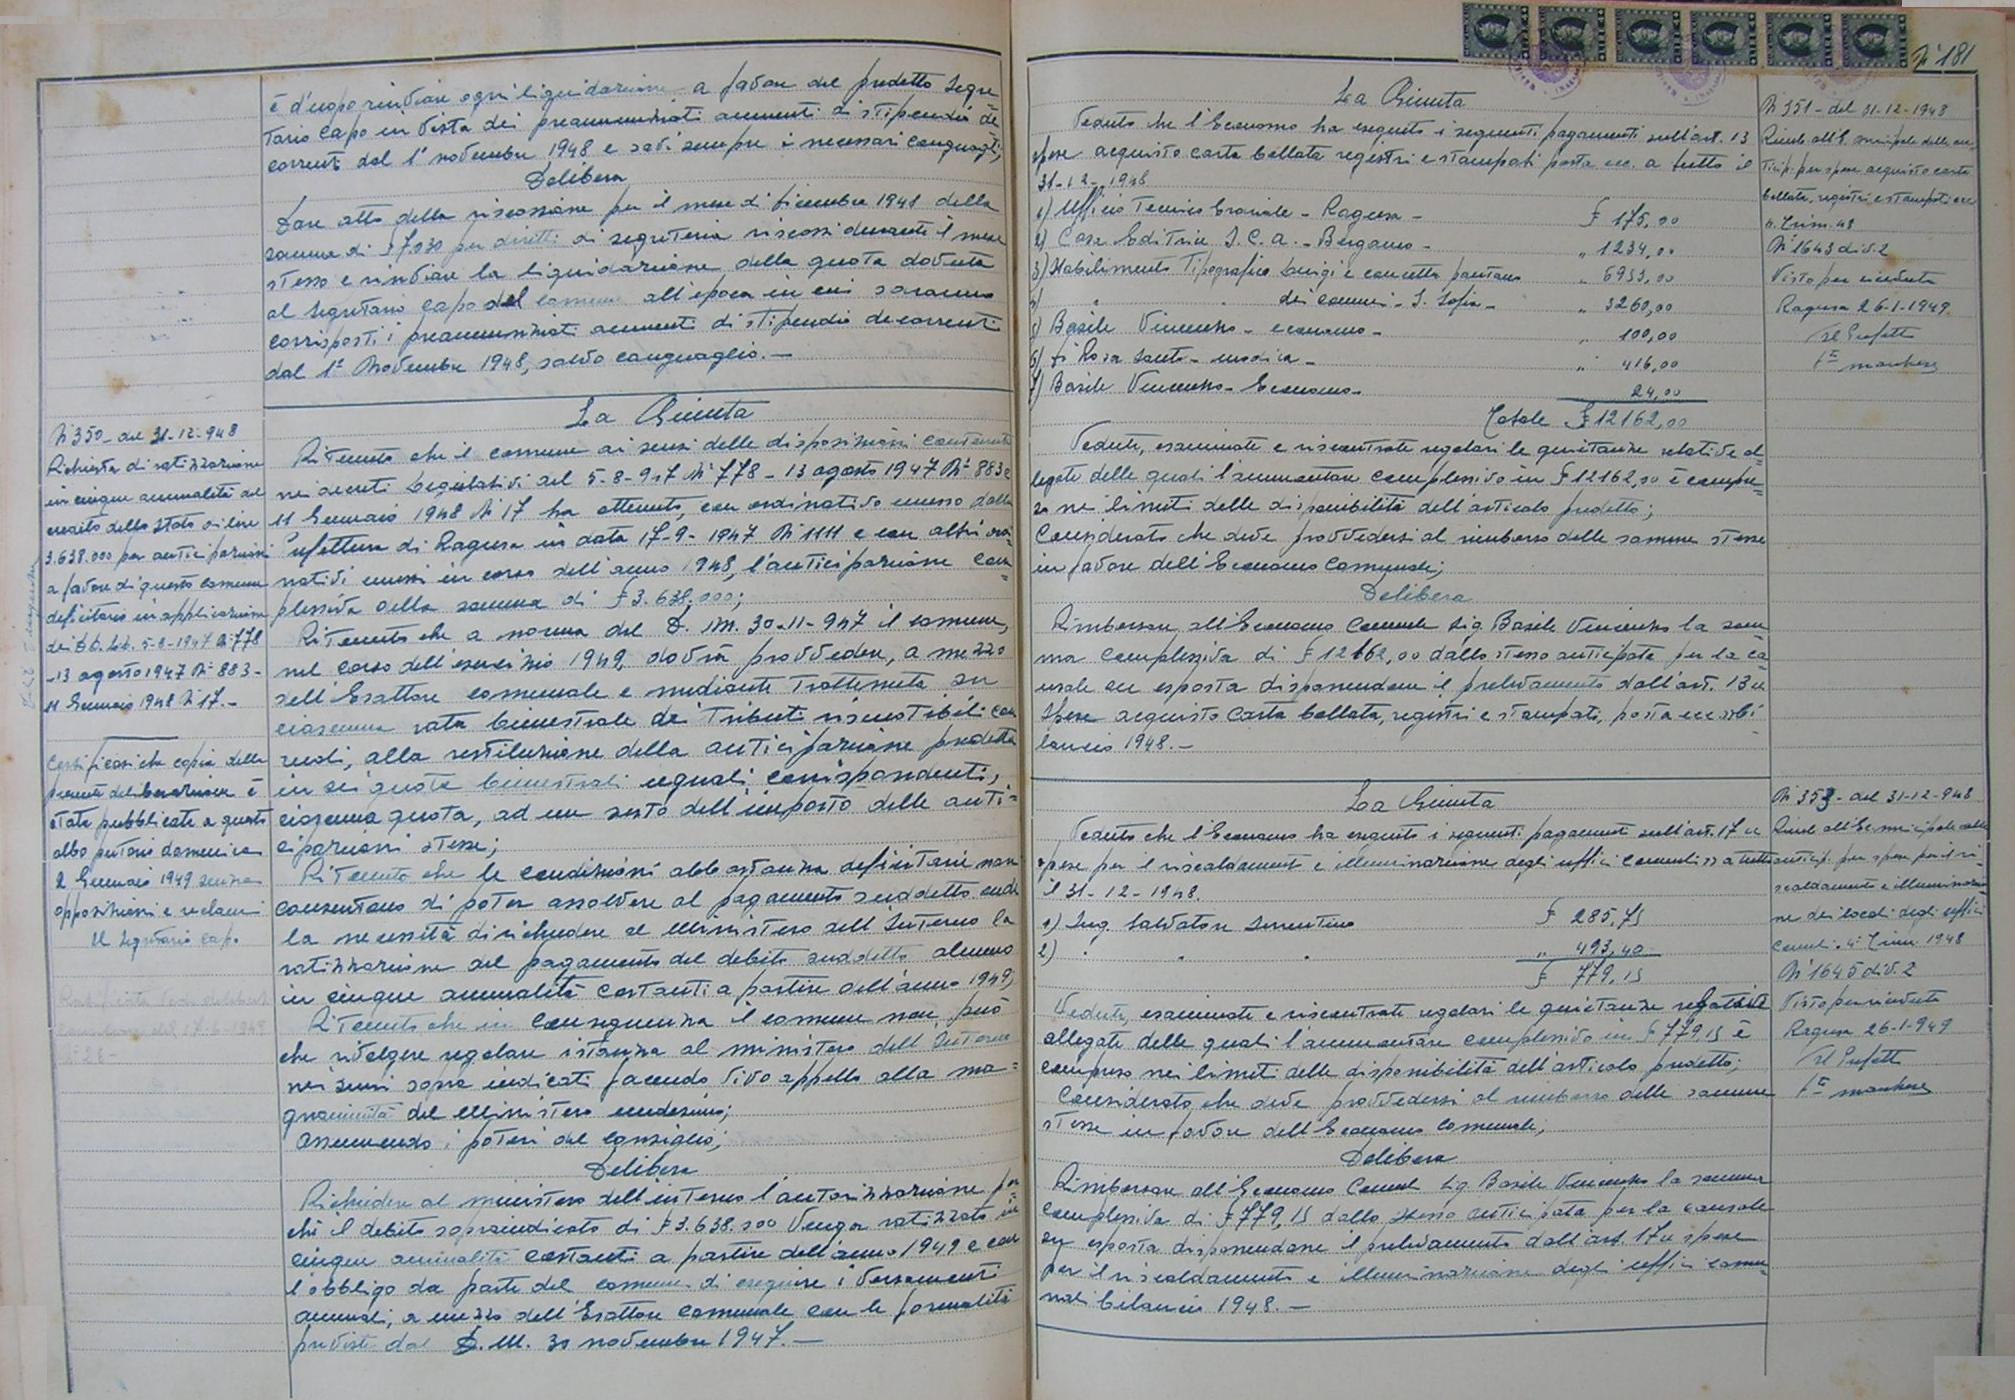 è d'uopo rinviare ogni liquidazione a favore del predetto Segre=
tario Capo in vista dei preannunziati aumenti di stipendio de=
correnti dal 1° novembre 1948 e salvi sempre i necessari conguagli;
Delibera
Dare atto della riscossione per il mese di dicembre 1948 della
somma di £ 7.030 per diritti di segreteria riscossi durante il mese
stesso e rinviare la liquidazione della quota dovuta
al Segretario Capo del comune all'epoca in cui saranno
corrisposti i preannunziati aumenti di stipendio decorrenti
dal 1° Novembre 1948, salvo conguaglio.-
N° 350 - del 31-12-948
Richiesta di ratizzazione
in cinque annualità del
credito dello Stato di lire
3.638.000 per anticipazioni
a favore di questo Comune
deficitario in applicazione
dei DD. LL. 5-8-1947 N° 778
- 13 agosto 1947 N° 883 -
11 Gennaio 1948 N° 17.-
Certificasi che copia della
presente deliberazione è
stata pubblicata a questo
albo pretorio domenica
2 Gennaio 1949 senza
opposizioni e reclami
Il Segretario Capo
La Giunta
Ritenuto che il comune ai sensi delle disposizioni contenute
nei decreti legislativi del 5-8-947 N° 778 - 13 agosto 1947 N° 883 e
11 Gennaio 1948 N° 17 ha ottenuto, con ordinativo emesso dalla
Prefettura di Ragusa in data 17-9-1947 N° 1111 e con altri ordi=
nativi emessi in corso dell'anno 1948, l'anticipazione com=
plessiva della somma di £ 3.638.000;
Ritenuto che a norma del D. M. 30-11-947 il comune,
nel corso dell'esercizio 1949, dovrà provvedere, a mezzo
dell'Esattore comunale e mediante trattenuta su
ciascuna rata bimestrale dei tributi riscuotibili con
ruoli, alla restituzione della anticipazione predetta
in sei quote bimestrali uguali corrispondenti,
ciascuna quota, ad un sesto dell'importo delle anti=
cipazioni stesse;
Ritenuto che le condizioni abbastanza deficitarie non
consentono di poter assolvere al pagamento suddetto onde
la necessità di richiedere al Ministero dell'Interno la
ratizzazione del pagamento del debito suddetto almeno
in cinque annualità costanti a partire dell'anno 1949;
Ritenuto che in conseguenza il comune non può
che rivolgere regolare istanza al ministero dell'Interno
nei sensi sopra indicati facendo vivo appello alla ma=
gnanimità del Ministero medesimo;
Assumendo i poteri del Consiglio;
Delibera
Richiedere al ministero dell'interno l'autorizzazione per
chè il debito sopraindicato di £ 3.638.000 venga ratizzato in
cinque annualità costanti a partire dell'anno 1949 e con
l'obbligo da parte del comune di eseguire i versamenti
annuali, a mezzo dell'Esattore comunale con le formalità
previste dal D. M. 30 novembre 1947.-
N° 181
La Giunta
Veduto che l'Economo ha eseguito i seguenti pagamenti sull'art. 13
spese acquisto carta bollata registri e stampati posta ecc. a tutto il
31-12-1948
1) Ufficio Tecnico Erariale - Ragusa - £ 175,00
2) Casa Editrice I.C.A. - Bergamo - " 1234,00
3) Stabilimento Tipografico Luigi e Concetta pantano " 6953,00
4) " " dei comuni - S. Sofia - " 3260,00
5) Basile Vincenzo - economo - " 100,00
6) Di Rosa Santo - modica - " 416,00
7) Basile Vincenzo - Economo - 24,00
Totale £ 12162,00
Vedute, esaminate e riscontrate regolari le quietanze relative al=
legate delle quali l'ammontare complessivo in £ 12162,00 è compre=
so nei limiti delle disponibilità dell'articolo predetto;
Considerato che deve provvedersi al rimborso delle somme stesse
in favore dell'Economo Comunale;
Delibera
Rimborsare all'Economo Comunale Sig. Basile Vincenzo la som
ma complessiva di £ 12162,00 dallo stesso anticipata per la ca
usale su esposta disponendone il prelevamento dall'art. 13 "
Spese acquisto carta bollata, registri e stampati, posta ecc. bi
lancio 1948.-
N° 351 - del 31-12-1948
Rimb. all'E. municipale delle an
ticip. per spese acquisto carta
bollata, registri e stampati ecc
4° Trim. 48
N° 1643 div. 2
Visto per ricevuta
Ragusa 26-1-1949
Il Prefetto
La Giunta
Veduto che l'Economo ha eseguito i seguenti pagamenti sull'art. 17 "
spese per il riscaldamento e illuminazione degli uffici comunali" a tutto
il 31-12-1948.
1) Ing. Salvatore Sorrentino £ 285,75
2) " " " " 493,40
£ 779,15
Vedute, esaminate e riscontrate regolari le quietanze relative
allegate delle quali l'ammontare complessivo in £ 779,15 è
compreso nei limiti delle disponibilità dell'articolo predetto;
Considerato che deve provvedersi al rimborso delle somme
stesse in favore dell'Economo Comunale;
Delibera
Rimborsare all'Economo Comunal Sig. Basile Vincenzo la somma
complessiva di £ 779,15 dallo stesso anticipata per la causale
su esposta disponendone il prelevamento dall'art. 17 " spese
per il riscaldamento e illuminazione degli uffici comu=
nali bilancio 1948.-
N° 352 - del 31-12-948
Rimb. all'E. municipale delle
anticip. per spese per il ri=
scaldamento e illuminazio
ne dei locali degli uffici
comunli - 4° Trim. 1948
N° 1645 div. 2
Visto per ricevuta
Ragusa 26-1-949
Il Prefetto